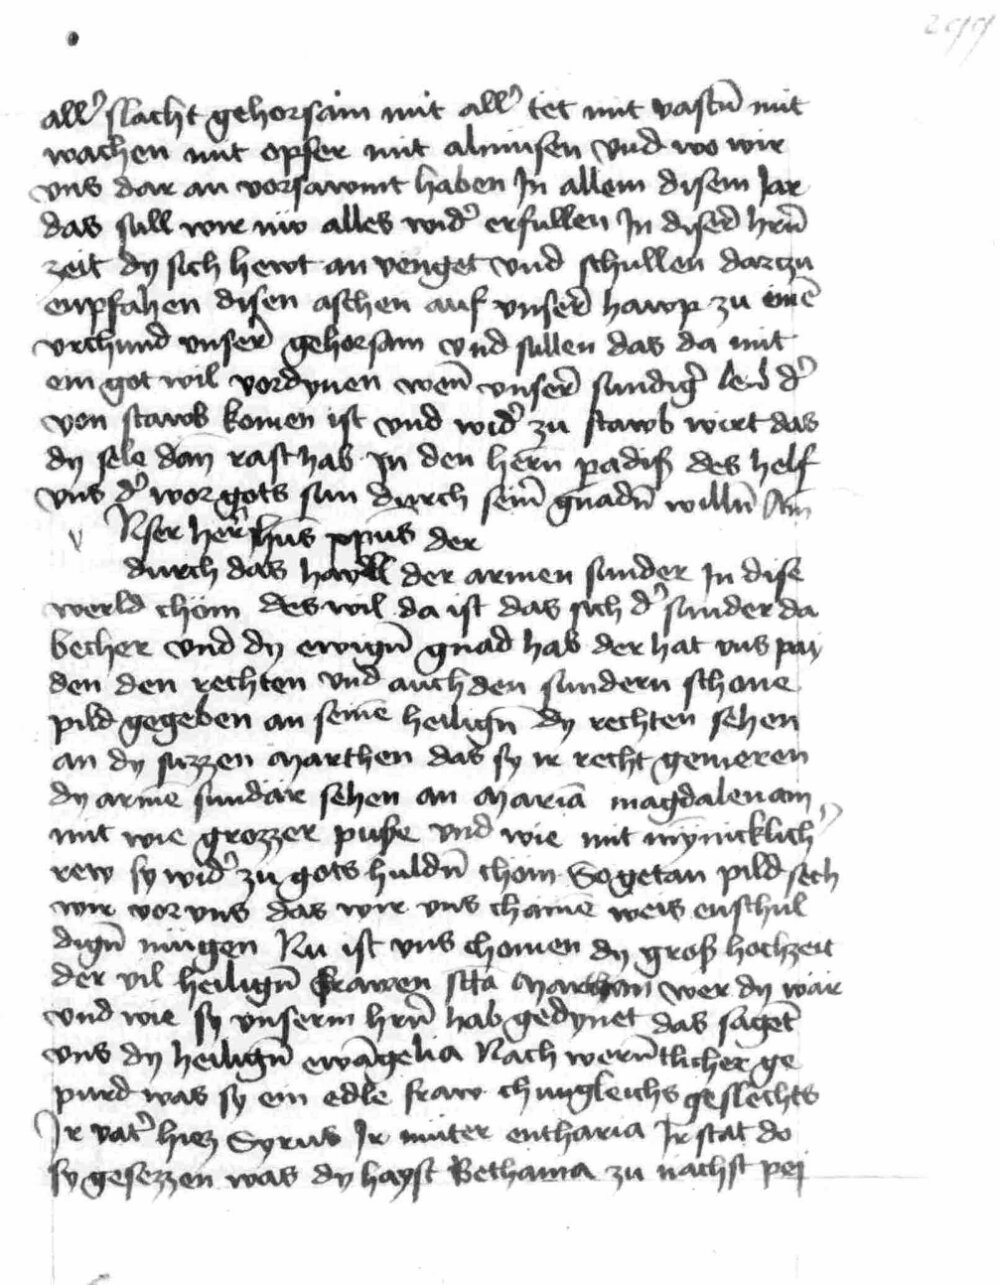 299
all' slacht gehorsam mit all' tet mit vastn̄ mit
wachen mit opfer mit almusen vnd wo wir
vns dar an vorsawmt haben In allem disem Jar
das sull wir nw alles wid' erfullen In diser hrn̄
zeit dy sich hewt an venget vnd schullen darczu
enpfahen disen aschen auf vnser hawp zu eim̄e
vrchund vnser gehorsam vnd sullen das da mit
ein got wil vordynen wen̄ vnser sundig' leib d'
von stawb komen ist vnd wid' zu stawb wirt das
dy sele dan rast hab In den hern̄ padiß des helf
vns d' wor gots sun durch sein̄ gnadn̄ willn̄ Am̄
v Nser her' Ihus xp̄us der
durch das hayll der armen sunder In dise
werld chom des wil da ist das sich d' sunder da
becher vnd dy ewign̄ gnad hab der hat vns pay
den den rechten vnd auch den sundern schone
pild gegeben an seinē heilign̄ dy rechten sehen
an dy suzzen Marthen das sy ir recht gemeren
dy armē sundär sehen an Mariā magdalenam
mit wie grozzer puße vnd wie mit mynicklich'
rew sy wid' zu gots huldn̄ chom So getan pild sech
wir vor vns das wir vns chainē weis enschul
dign̄ mügen Nu ist vns chomen dy groß hochzeit
der vil heilign̄ frawen sctā Marthan wer dy wär
vnd wie sy vnserm hrn̄ hab gedynet das sagēt
vns dy heilign̄ ewāgelia Nach wern̄tlicher ge
purd was sy ein edle fraw chungleichs geslechts
Ir vat' hiez Syrus Ir muter entharia Ir stat do
sy gesezzen was dy hayst Bethania zu nachst pej